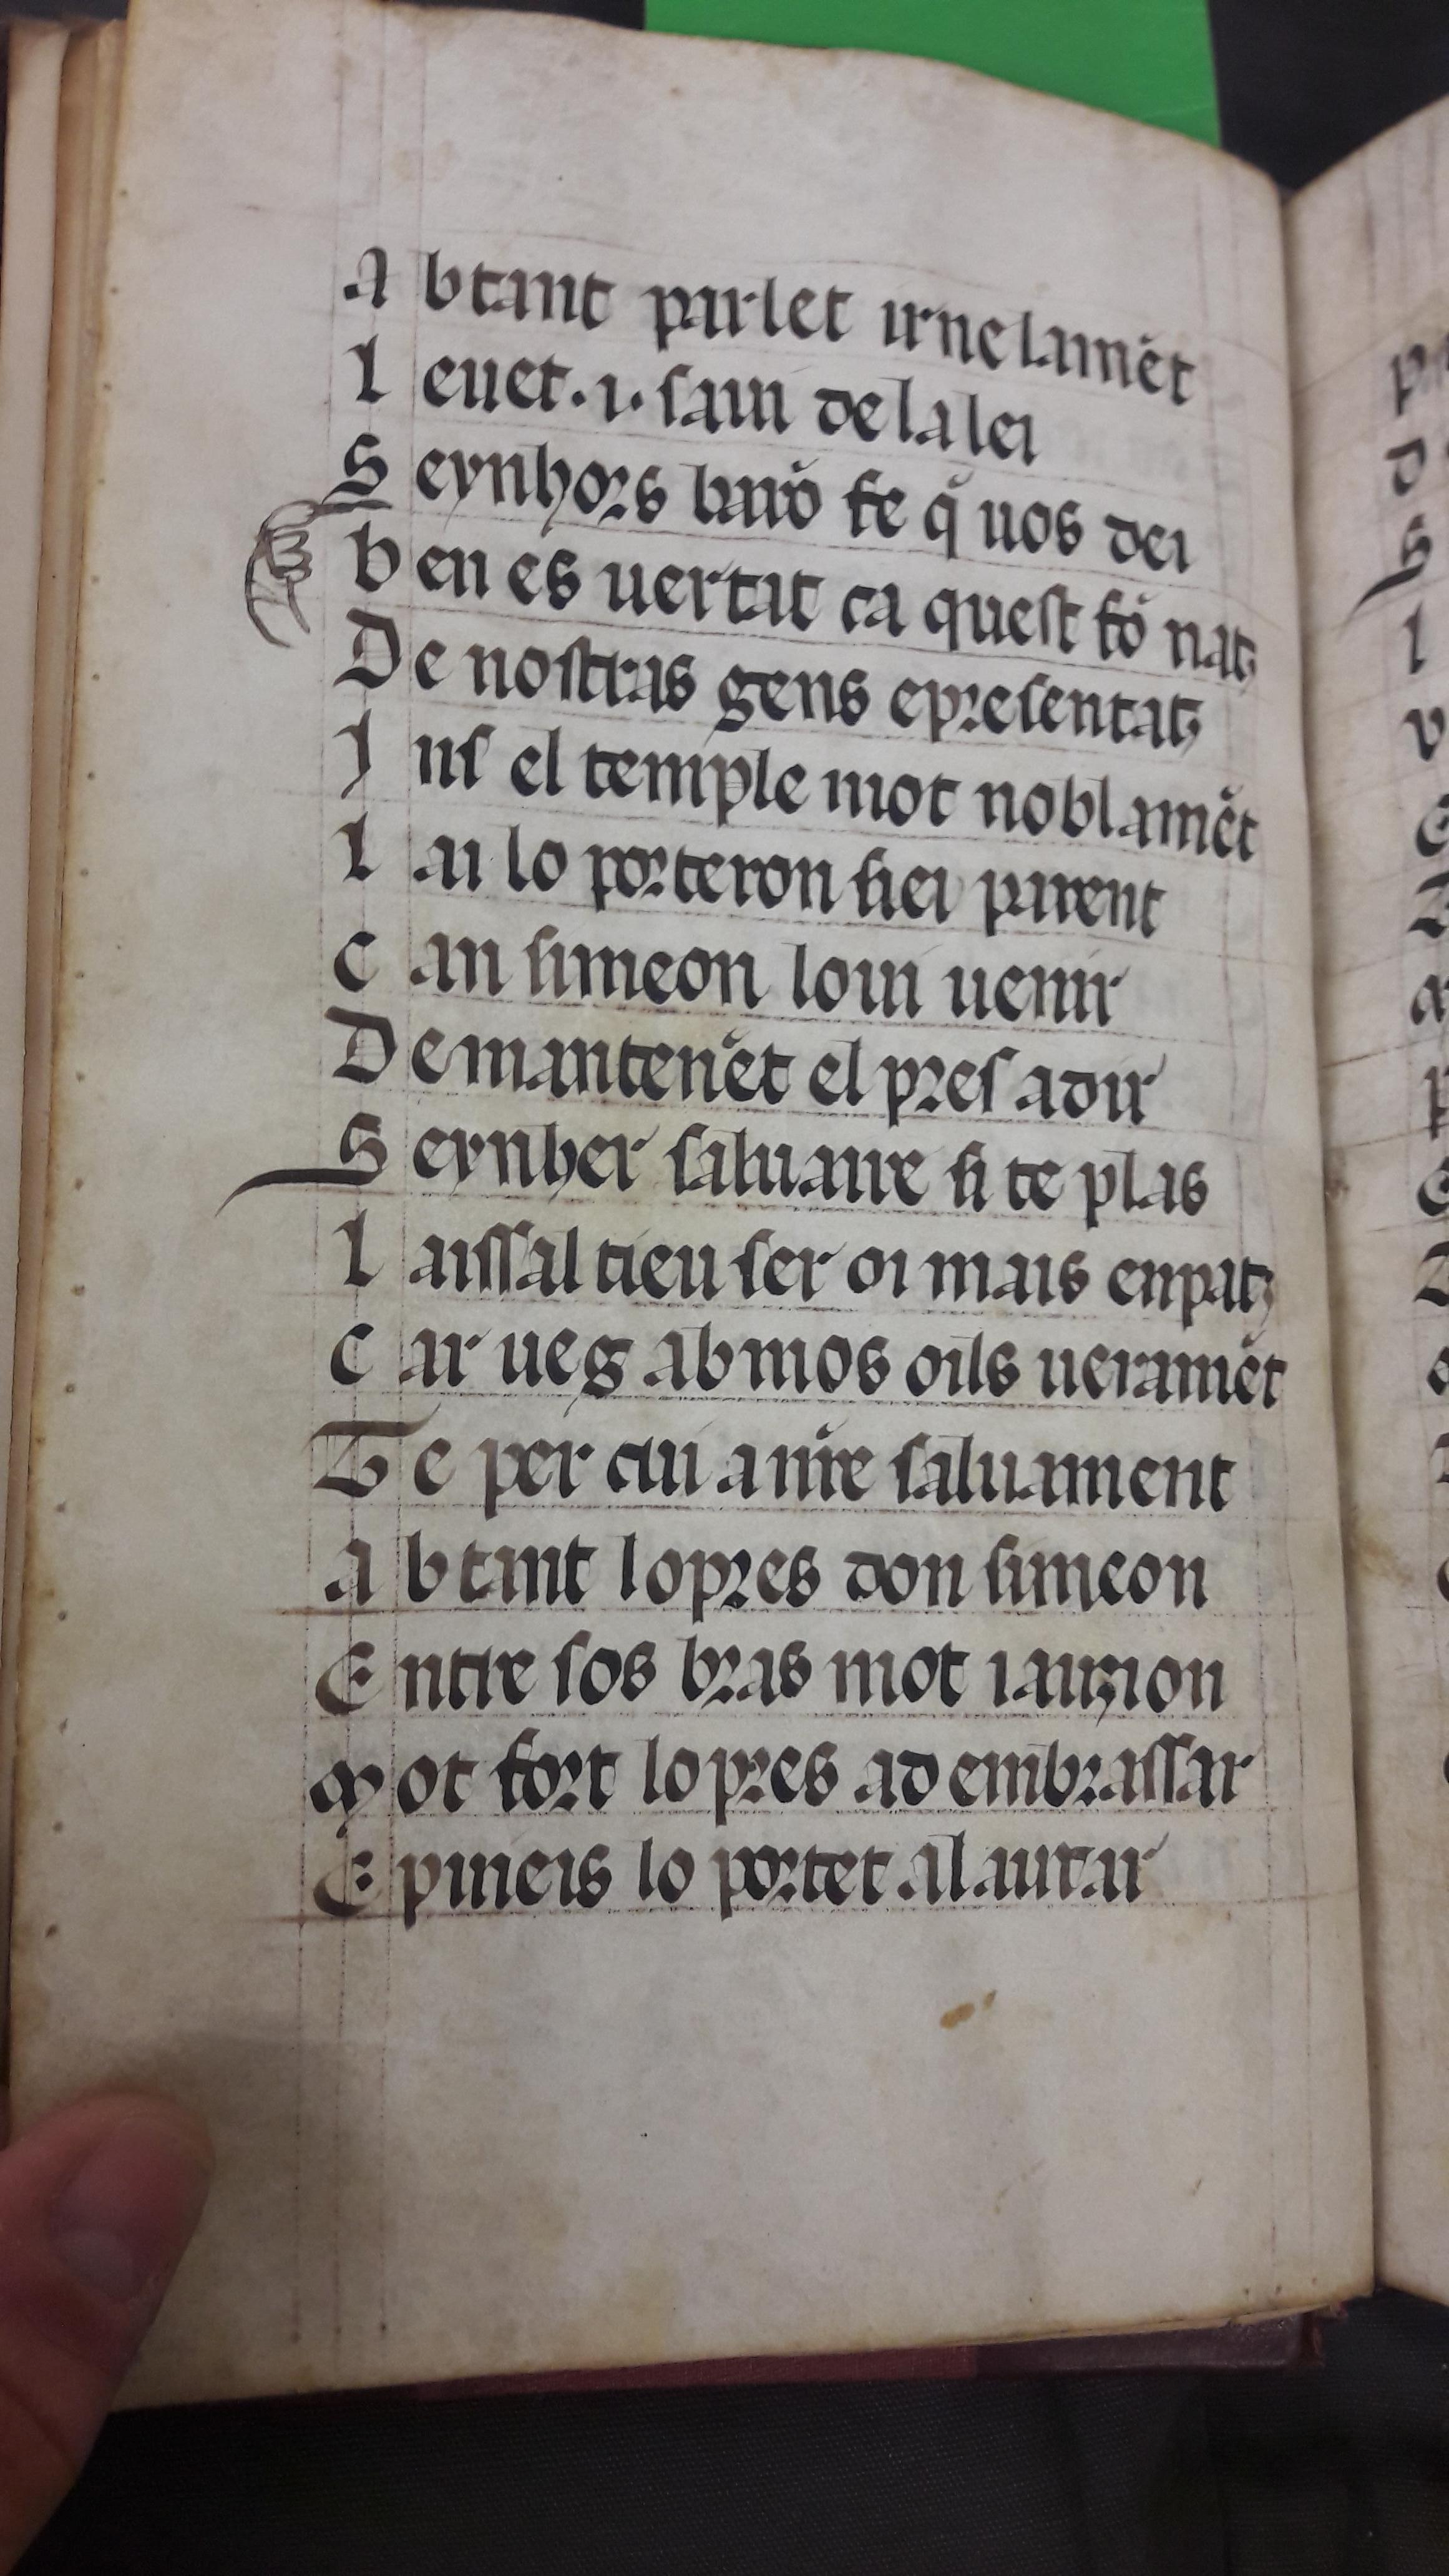 A btant parlet irnelamēt
l euet ·i· saui dela lei
S eynhors barō fe q̄ uos dei
b en es uertat ca quest fō natz
D e nostras gens epresentatz
I ns el temple mot noblamēt
l ai lo porteron siei parent
C an simeon loui uenir
D emantenēt el pres adir
S eynher saluaire si te plas
l aissal tieu ser oi mais enpatz
C ar ueg abmos oils ueramēt
T e per cui aurē saluament
A btant lopres don simeon
E ntre sos bras mot iauzion
M ot fort lopres ad embrassar
E pueis lo portet alautar